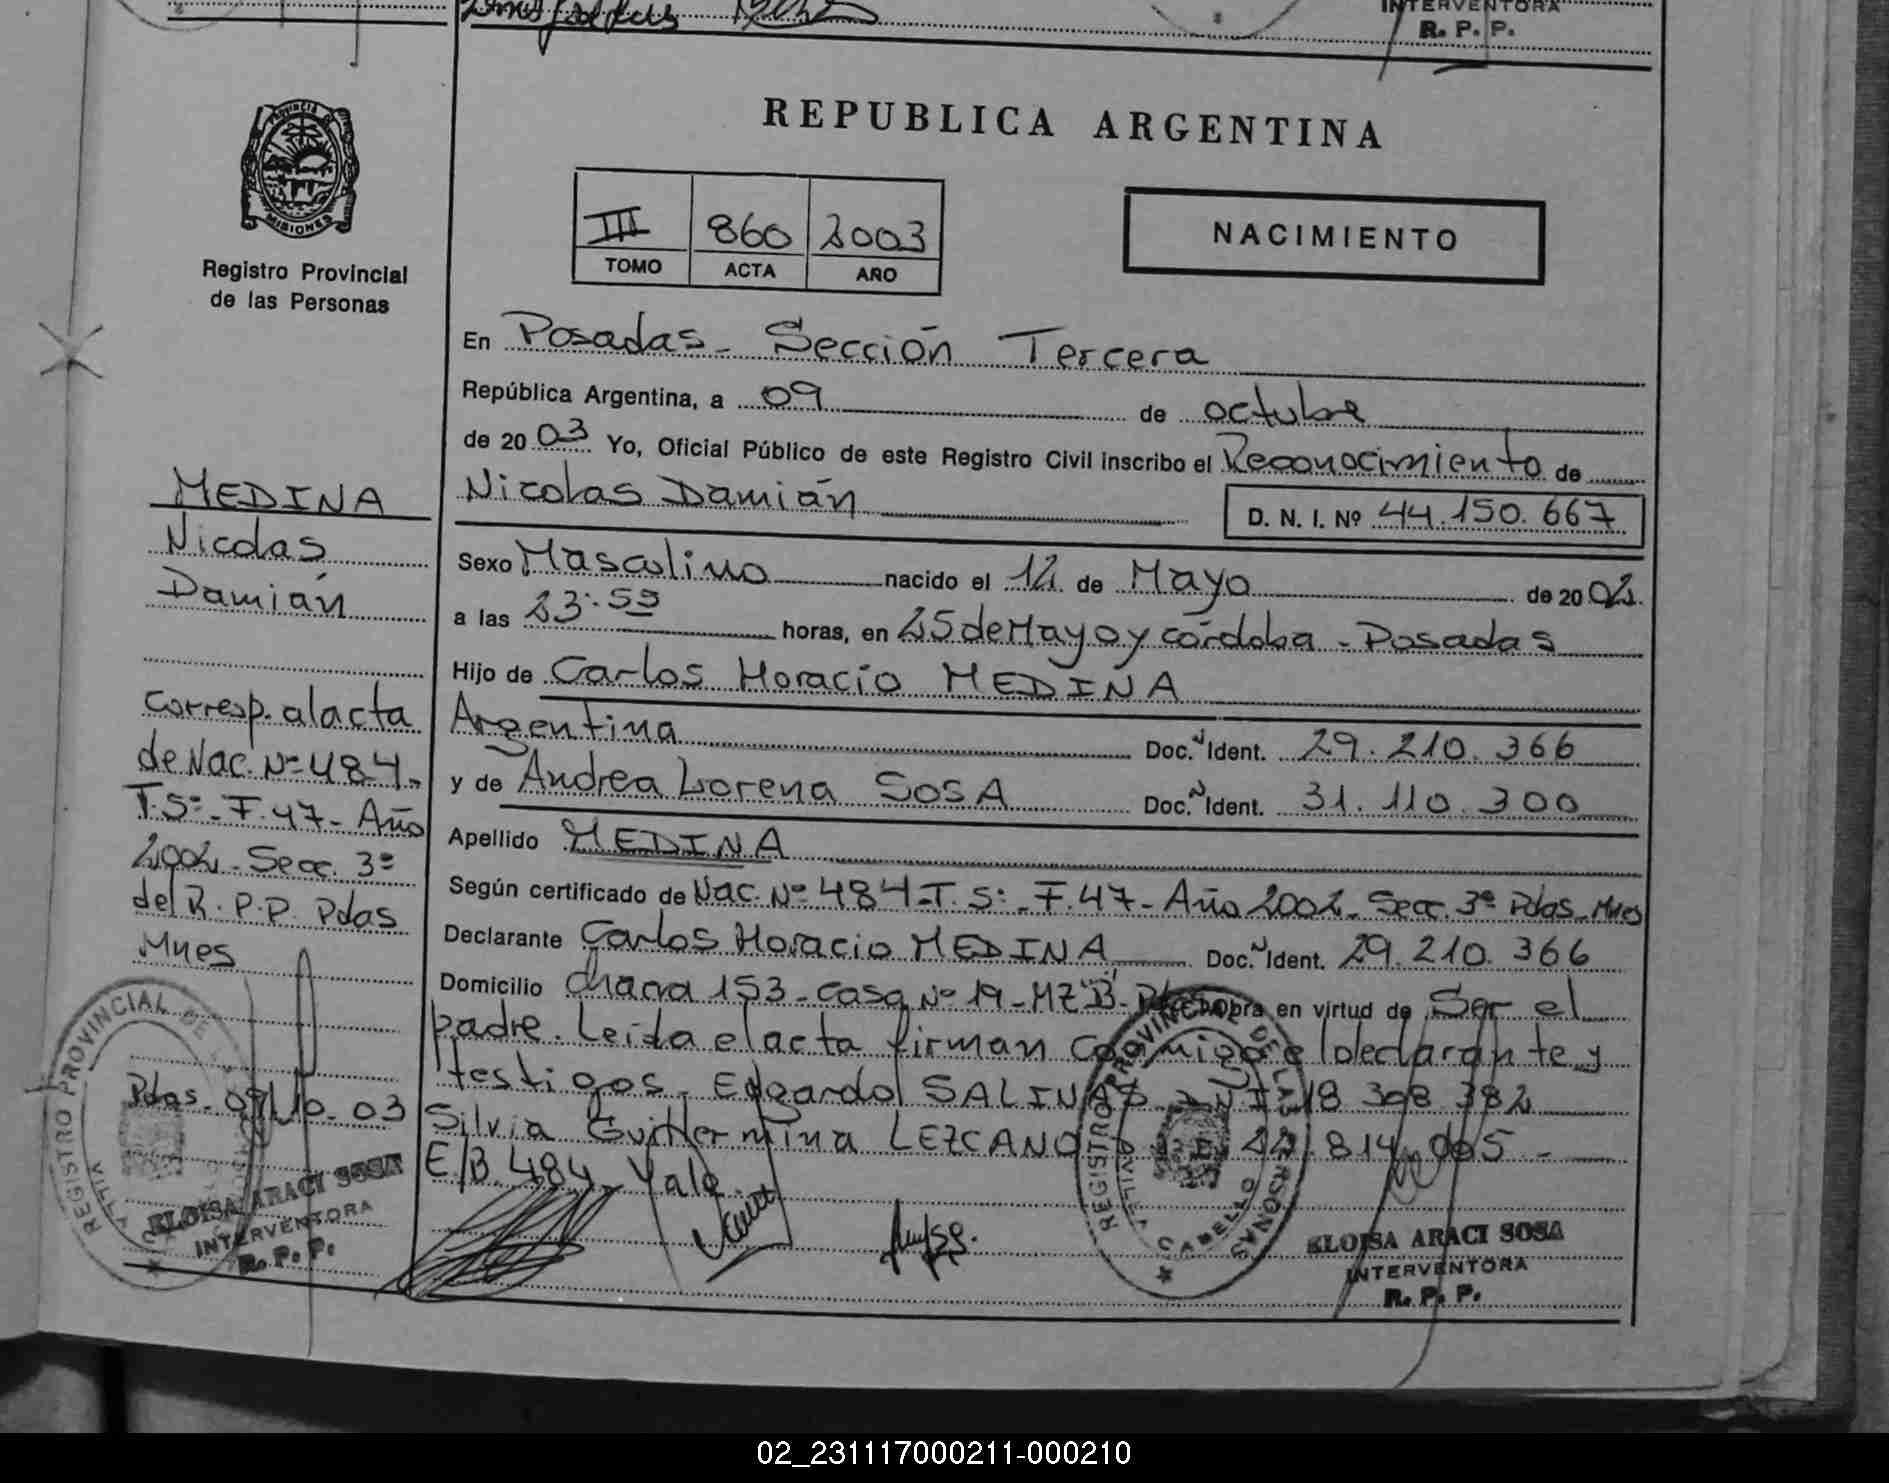 INTERVENTORA
R. P. P.
REPUBLICA ARGENTINA
PROVINCIA DE
MISIONES
Registro Provincial
de las Personas
III 860 2003
TOMO ACTA AÑO
NACIMIENTO
En Posadas - Sección Tercera
República Argentina, a 09 de octubre
de 2003 Yo, Oficial Público de este Registro Civil inscribo el Reconocimiento de
Nicolas Damián D. N. I. Nº 44.150.667
Sexo Masculino nacido el 12 de Mayo de 2002
a las 23:59 horas, en 25 de Mayo y córdoba - Posadas
Hijo de Carlos Horacio MEDINA
Argentina Doc. Ident. 29.210.366
y de Andrea Lorena SOSA Doc. Ident. 31.110.300
Apellido MEDINA
Según certificado de Nac. Nº 484 - T. 5º - F. 47 - Año 2002 - Secc. 3º Pdas - Mnes
Declarante Carlos Horacio MEDINA Doc. Ident. 29.210.366
Domicilio chacra 153 - casa Nº 19 - MZ "B" - obra en virtud de Ser el
padre. Leída el acta firman conmigo el declarante y
testigos - Edgardo SALINAS DNI 18 308 382
Silvia Guillermina LEZCANO 22.814.005 -
E/B. 484 Vale
MEDINA
Nicolas
Damián
Corresp. al acta
de Nac. Nº 484 -
T. 5º - F. 47 - Año
2002 - Secc. 3º
del R. P. P. Pdas
Mnes
Pdas - 09/10 - 03
REGISTRO PROVINCIAL DE LAS PERSONAS
VILLA CABELLO
ELOISA ARACI SOSA
INTERVENTORA
R. P. P.
REGISTRO PROVINCIAL DE LAS PERSONAS
VILLA CABELLO
ELOISA ARACI SOSA
INTERVENTORA
R. P. P.
02_231117000211-000210